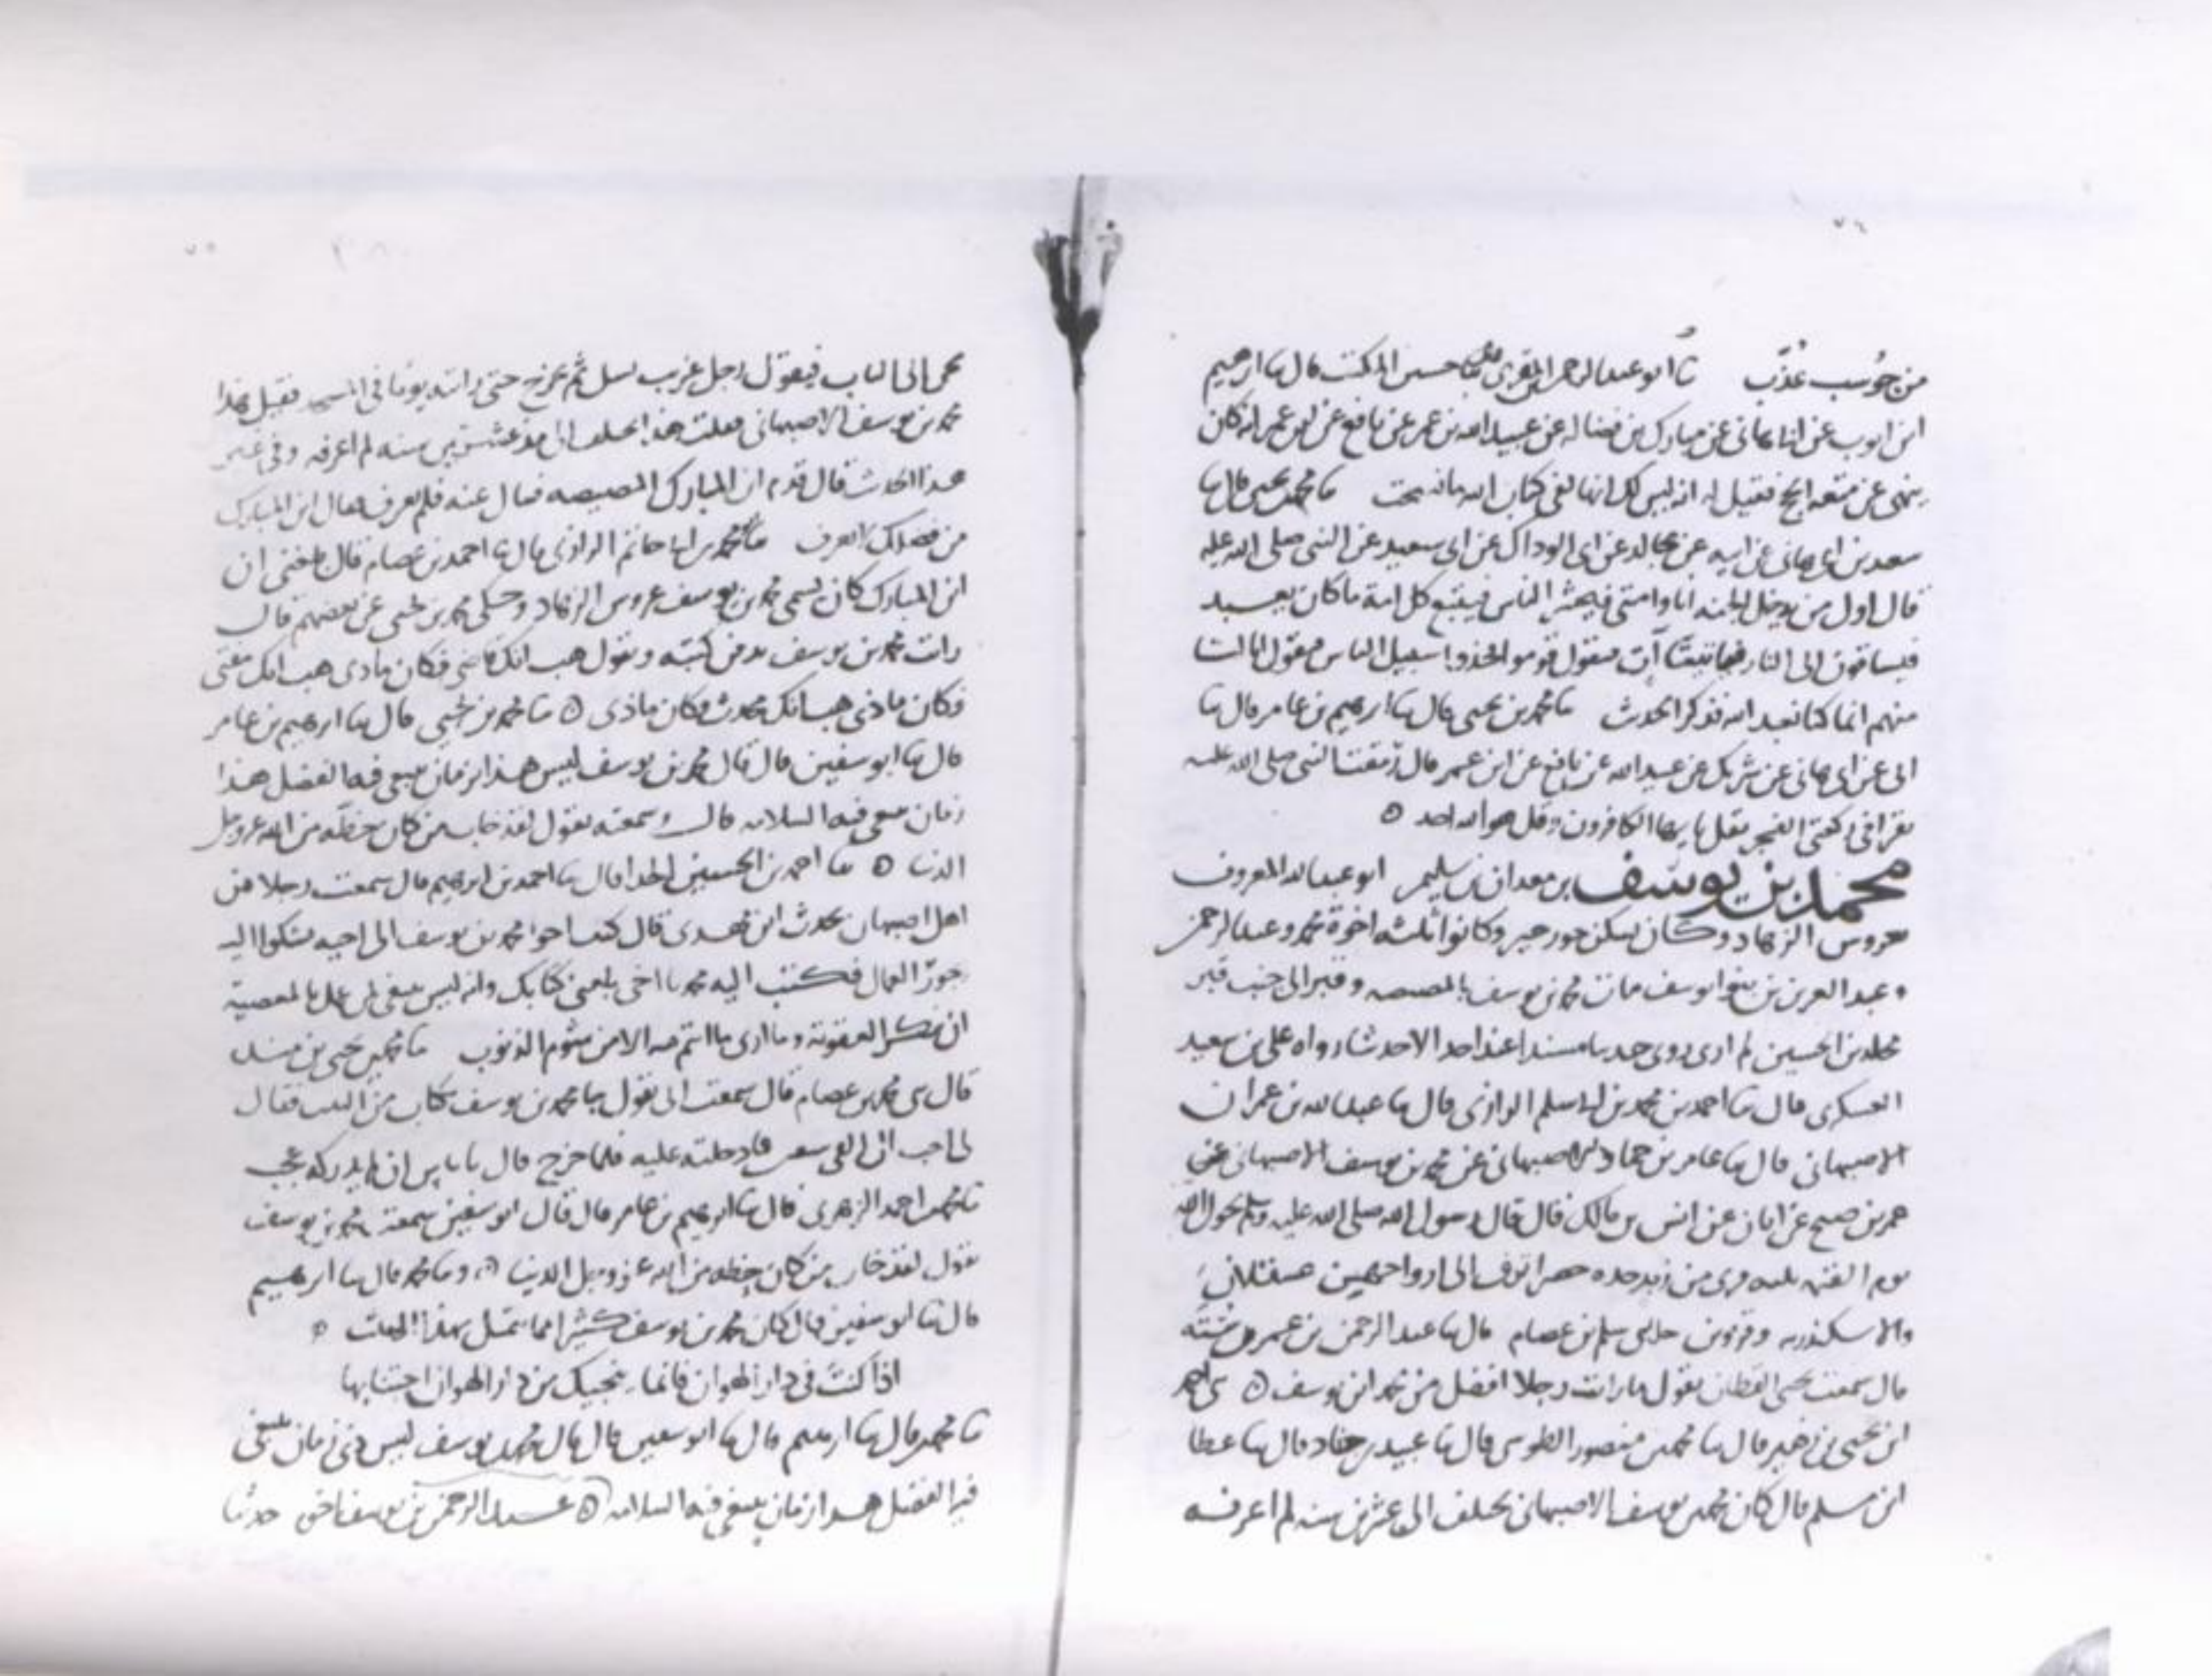 من حوسب عذب ثنا ابو عبدالرحمن المقرى حسن قال ثنا ابرهيم
ابن ايوب عن ابا هانى عن مبارك بن فضاله عن عبيد الله بن عمر عن نافع عن ابن عمر انه كان
ينهى عن متعه الحج فقيل له ان ابيس لك انها لفى كتاب الله ثنا محمد بن يحيى قال ثنا
سعد بن ابى هانى عن ابيه عن مجالد عن ابى الوداك عن ابى سعيد عن النبى صلى الله عليه
قال اول من يدخل الجنه انا وامتى فيحشر الناس فيتبع كل امة ما كان يعبد
فيساقون الى النار فيقول قوموا فخذوا سبيل الناس
منهم انما كنا نعبد الله فذكر الحديث ثنا محمد بن يحيى قال ثنا ابرهيم بن عامر قال ثنا
ابى عن ابى هانى عن شريك عن عبيد الله عن نافع عن ابن عمر قال رمقت النبى صلى الله عليه
يقرا فى ركعتى الفجر بقل يا ايها الكافرون وقل هو الله احد ه
محمد بن يوسف بن معدان بن سليم ابو عبدالله المعروف
بعروس الزهاد وكان يسكن جورجير وكانوا ثلثه اخوة محمد وعبدالرحمن
وعبد العزيز بن بنو يوسف مات محمد بن يوسف بالمصيصه وقبر الى جنب قبر
مخلد بن الحسين لم ارى روى حديثا مسندا عند احد الا حديثا رواه على بن سعيد
العسكرى قال ثنا احمد بن محمد بن ابى سلم الرازى قال ثنا عبدالله بن عمران
الاصبهانى قال ثنا عامر بن حماد الاصبهانى عن محمد بن يوسف الاصبهانى عن
عمر بن صبح عن ابان عن انس بن مالك قال قال رسول الله صلى الله عليه وسلم يحول الله
يوم القيمه ثلثه قرى من زبرجده خضرا تزف الى ازواجهن عسقلان
والاسكندريه وقزوين سلم بن عصام قال ثنا عبدالرحمن بن عمر رسته
قال سمعت يحيى القطان يقول ما رايت رجلا افضل من محمد ابن يوسف ه احمد
ابن يحيى بن زهير قال ثنا محمد بن منصور الطوسى قال ثنا عبيد بن جناد قال ثنا عطا
ابن مسلم قال كان محمد بن يوسف الاصبهانى يختلف الى عشرين سنه لم اعرفه
الى الباب فيقول رجل غريب يسل ثم يخرج حتى رايته يوما فى المسجد فقيل هذا
محمد بن يوسف الاصبهانى فقلت هذا يختلف الى منذ عشرين سنه لم اعرفه وفى غير
هذا الحديث قال قدم ابن المبارك المصيصه فسال عنه فلم يعرف فقال ابن المبارك
من فضلك لا تعرف ثنا محمد بن ابا حاتم الرازى قال ثنا احمد بن عصام قال بلغنى ان
ابن المبارك كان يسمى محمد بن يوسف عروس الزهاد وحكى محمد بن يحيى عن بعضهم قال
رايت محمد بن يوسف يدفن كتبه ويقول هب انك قاضى فكان ماذى هب انك مفتى
فكان ماذى هب انك محدث فكان ماذى ه ثنا محمد بن يحيى قال ثنا ابرهيم بن عامر
قال ثنا ابو سفين قال قال محمد بن يوسف ليس هذا زمان يبتغى فيه الفضل هذا
زمان يبتغى فيه السلامه قال وسمعته يقول لقد خاب من كان حظه من الله عز وجل
الدنيا ه ثنا احمد بن الحسين الحذا قال ثنا احمد بن ابرهيم قال سمعت رجلا من
اهل اصبهان يحدث ابن مهدى قال كتب اخو محمد بن يوسف الى اخيه يشكوا اليه
جور العمال فكتب اليه محمد يا اخى بلغنى كتابك وانه ليس ينبغى لمن عمل بالمعصية
ان ينكر العقوبة وما ارى ما انتم فيه الا من شوم الذنوب ثنا محمد بن يحيى بن منده
قال محمد بن عصام قال سمعت ابى يقول جا محمد بن يوسف بكتاب من الى فقال
فادخلته عليه فلما خرج قال
ثنا محمد بن احمد الزهرى قال ثنا ابرهيم بن عامر قال قال ابو سفين سمعت محمد بن يوسف
يقول لقد خاب من كان حظه من الله عز وجل الدنيا ه وثنا محمد قال ثنا ابرهيم
قال ثنا ابو سفين قال كان محمد بن يوسف كثيرا مما يتمثل بهذا البيت ه
اذا كنت فى دار الهوان فانما ينجيك من دار الهوان اجتنابها
ثنا محمد قال ثنا ابرهيم قال ثنا ابو سفين قال قال محمد بن يوسف ليس ذى زمان يبتغى
فيه الفضل هذا زمان يبتغى فيه السلامه ه عبدالرحمن بن يوسف اخى حدثنا